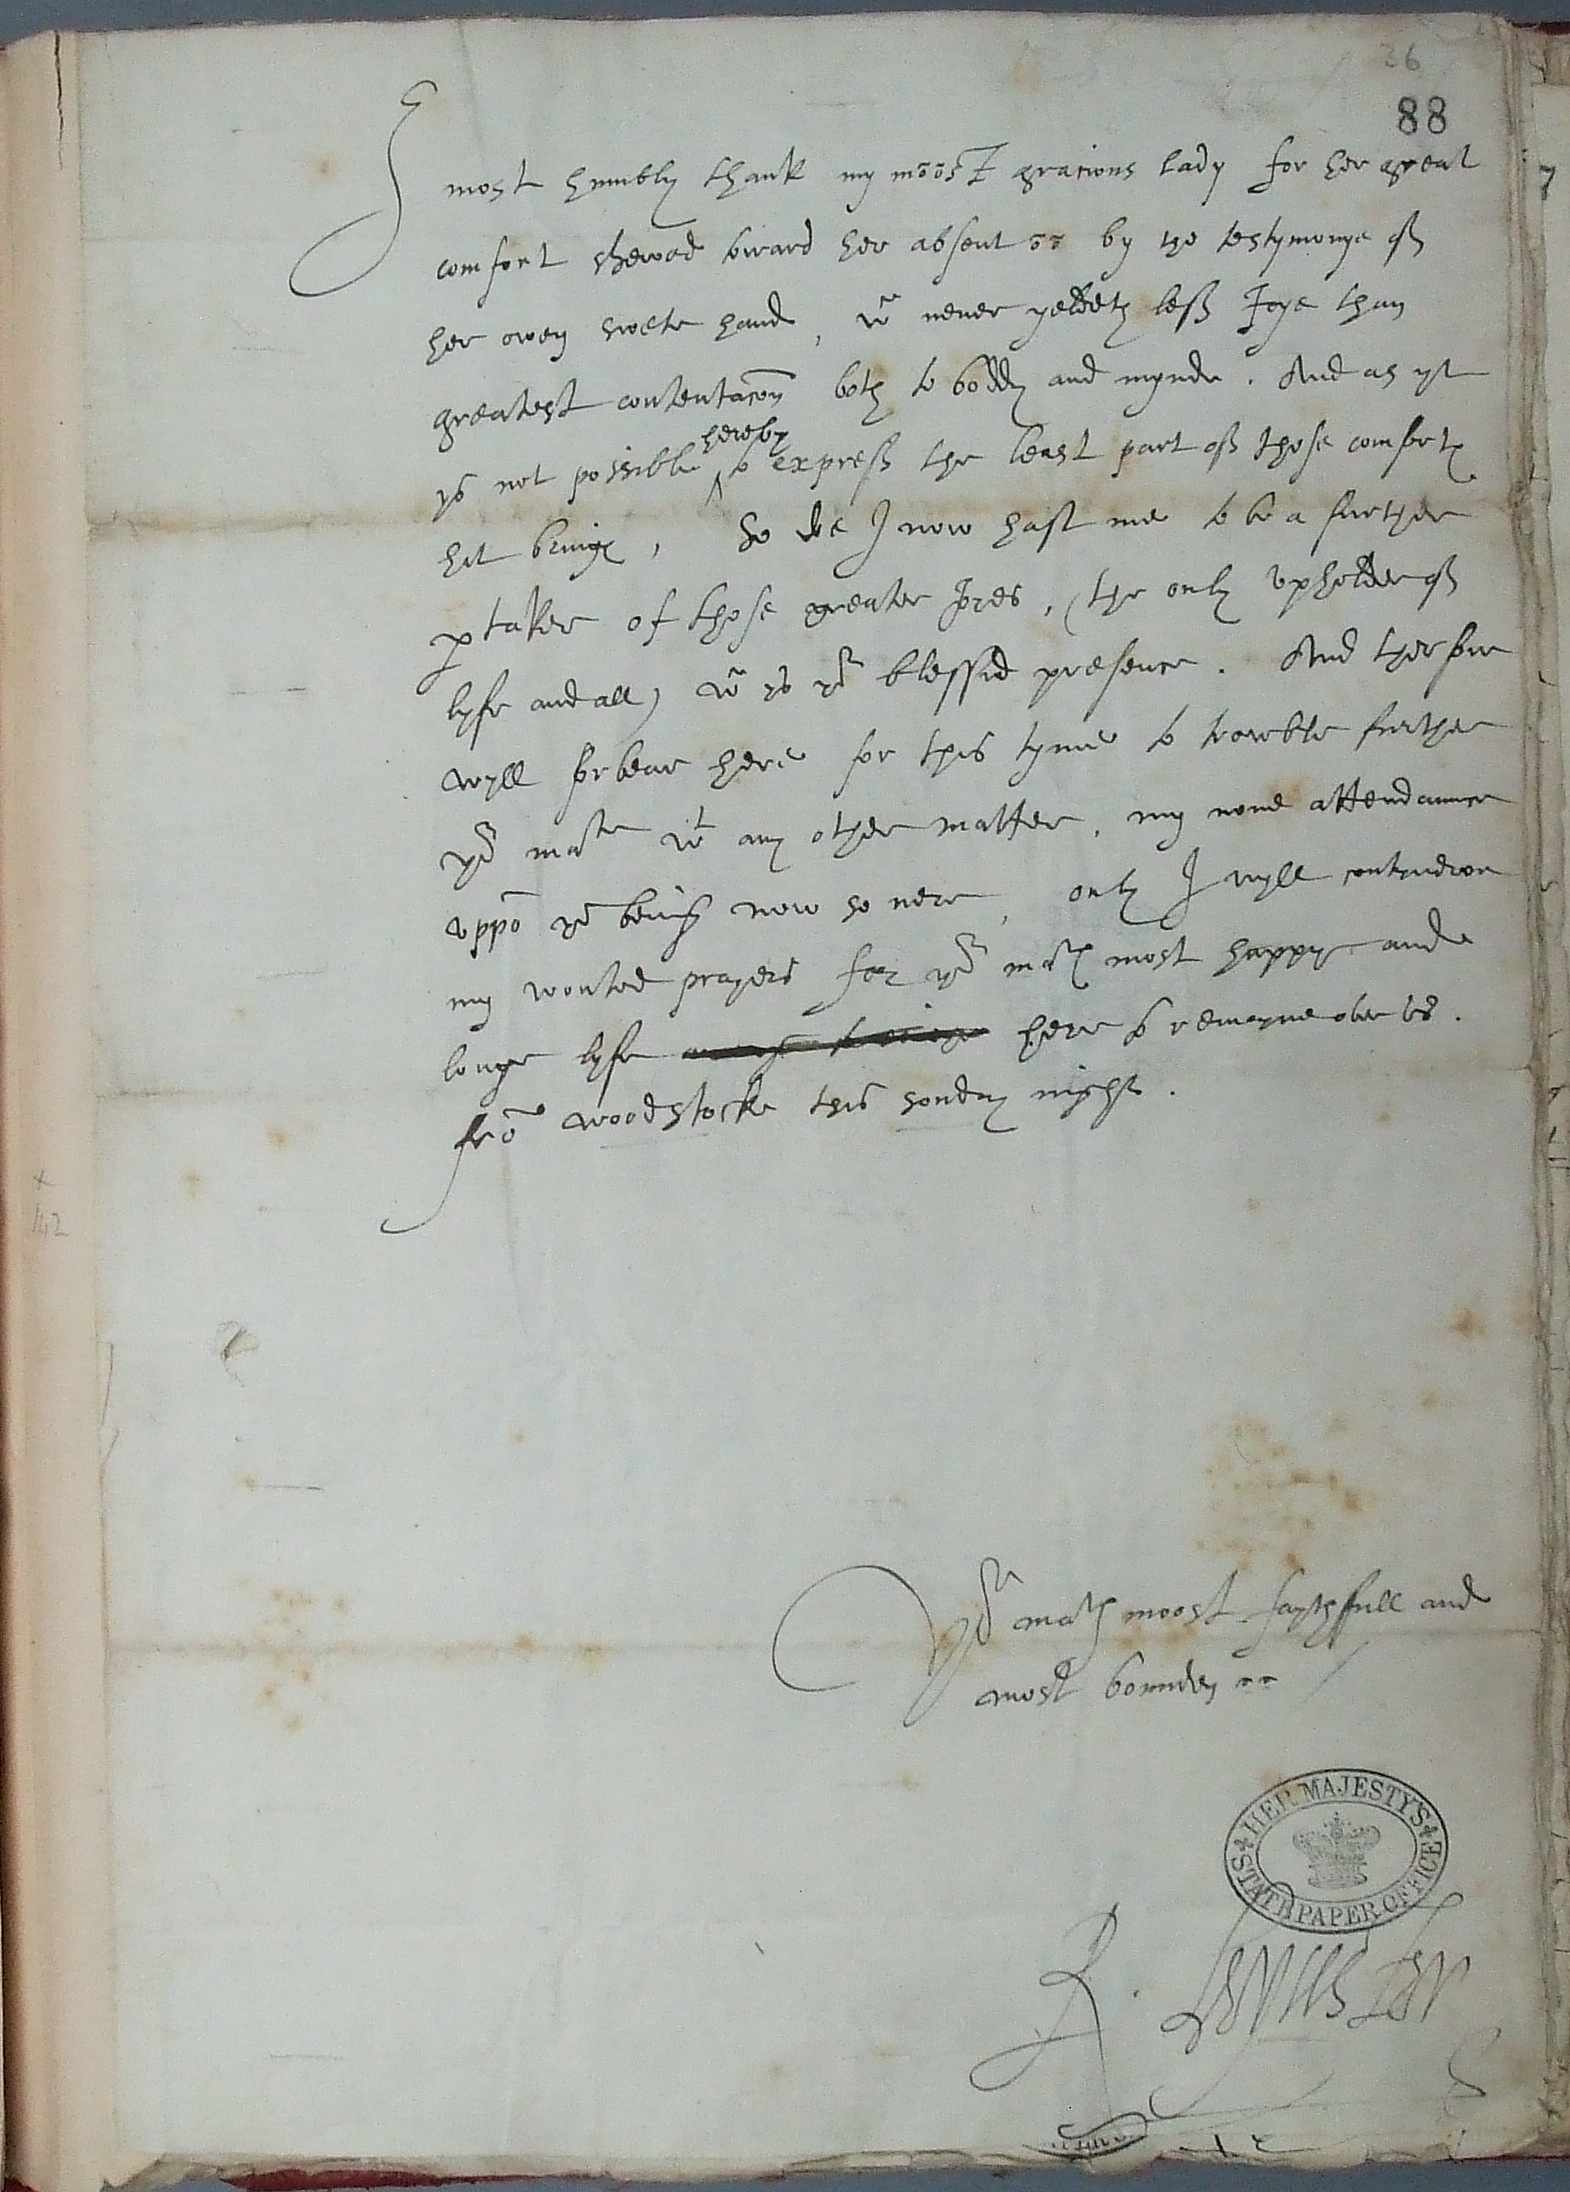 36
88
I most humbly thank my mōōst gracious lady for her great
comfort shewed toward her absent ōō by the testymonye off
her owen swete hand, wch never yeldeth less Joye than
greatest contentacon both to boddy and mynde. And as yt
ys not possible hereby to express the least part off those comforts
hit brings, So doe I now hast me to be a further
ptaker of those greater Joyes, (the only upholder off
lyfe and all) wch ys yor blessid presence. And therfore
wyll forbear here for this tyme to trowble further
yor matie wt any other matter, my none attendaunce
uppō yu being now so nere, only I wyll contynew
my wonted prayers for yor maties most happy and
longe lyfe here to remayne over us.
frō woodstocke this sonday night.
Yor maties moost faythfull and
most bounden ōō
HER MAJESTY'S STATE PAPER OFFICE
R. Leycester
142